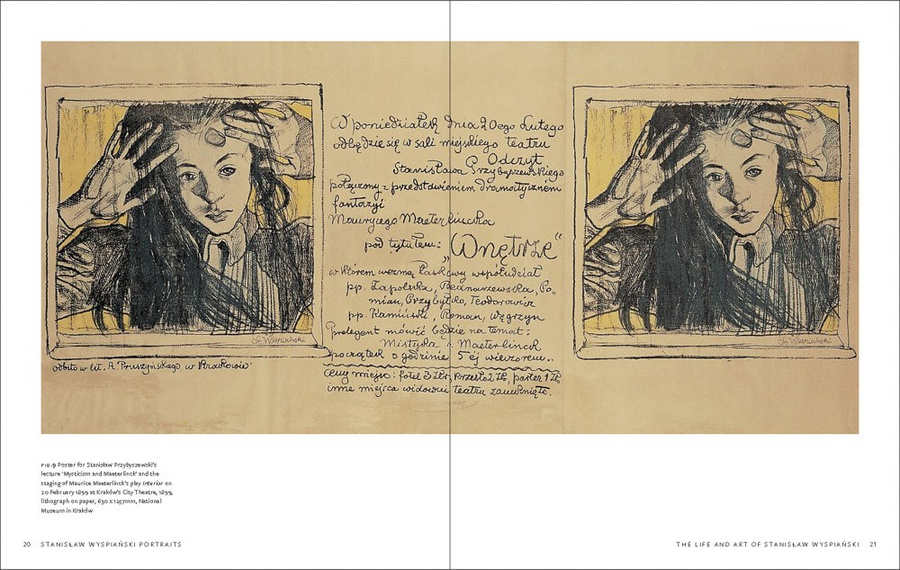 W poniedziałek dnia 20ego Lutego
odbędzie się w sali miejskiego teatru
Odczyt
Stanisława Przybyszewskiego
połączony z przedstawieniem dramatycznem
fantazyi
Maurycego Maeterlincka
pod tytułem: „Wnętrze“
w którem wezmą łaskawy współudział
pp. Zapolska, Bednarzewska, Po-
mian, Przybyłko, Teodorowicz
pp. Kamiński, Roman, Węgrzyn
Prelegent mówić będzie na temat:
Mistyka i Maeterlinck
początek o godzinie 5ej wieczorem..
Ceny miejsc: fotel 3 złr, krzesło 2 złr, parter 1 złr,
inne miejsca widowni teatru zamknięte.
St Wyspiański
St Wyspiański
odbito w lit. A. Pruszyńskiego w Krakowie
FIG.9 Poster for Stanisław Przybyszewski's
lecture 'Mysticism and Maeterlinck' and the
staging of Maurice Maeterlinck's play Interior on
20 February 1899 at Kraków's City Theatre, 1899,
lithograph on paper, 630 x 1257mm, National
Museum in Kraków
20 STANISŁAW WYSPIAŃSKI PORTRAITS
THE LIFE AND ART OF STANISŁAW WYSPIAŃSKI 21